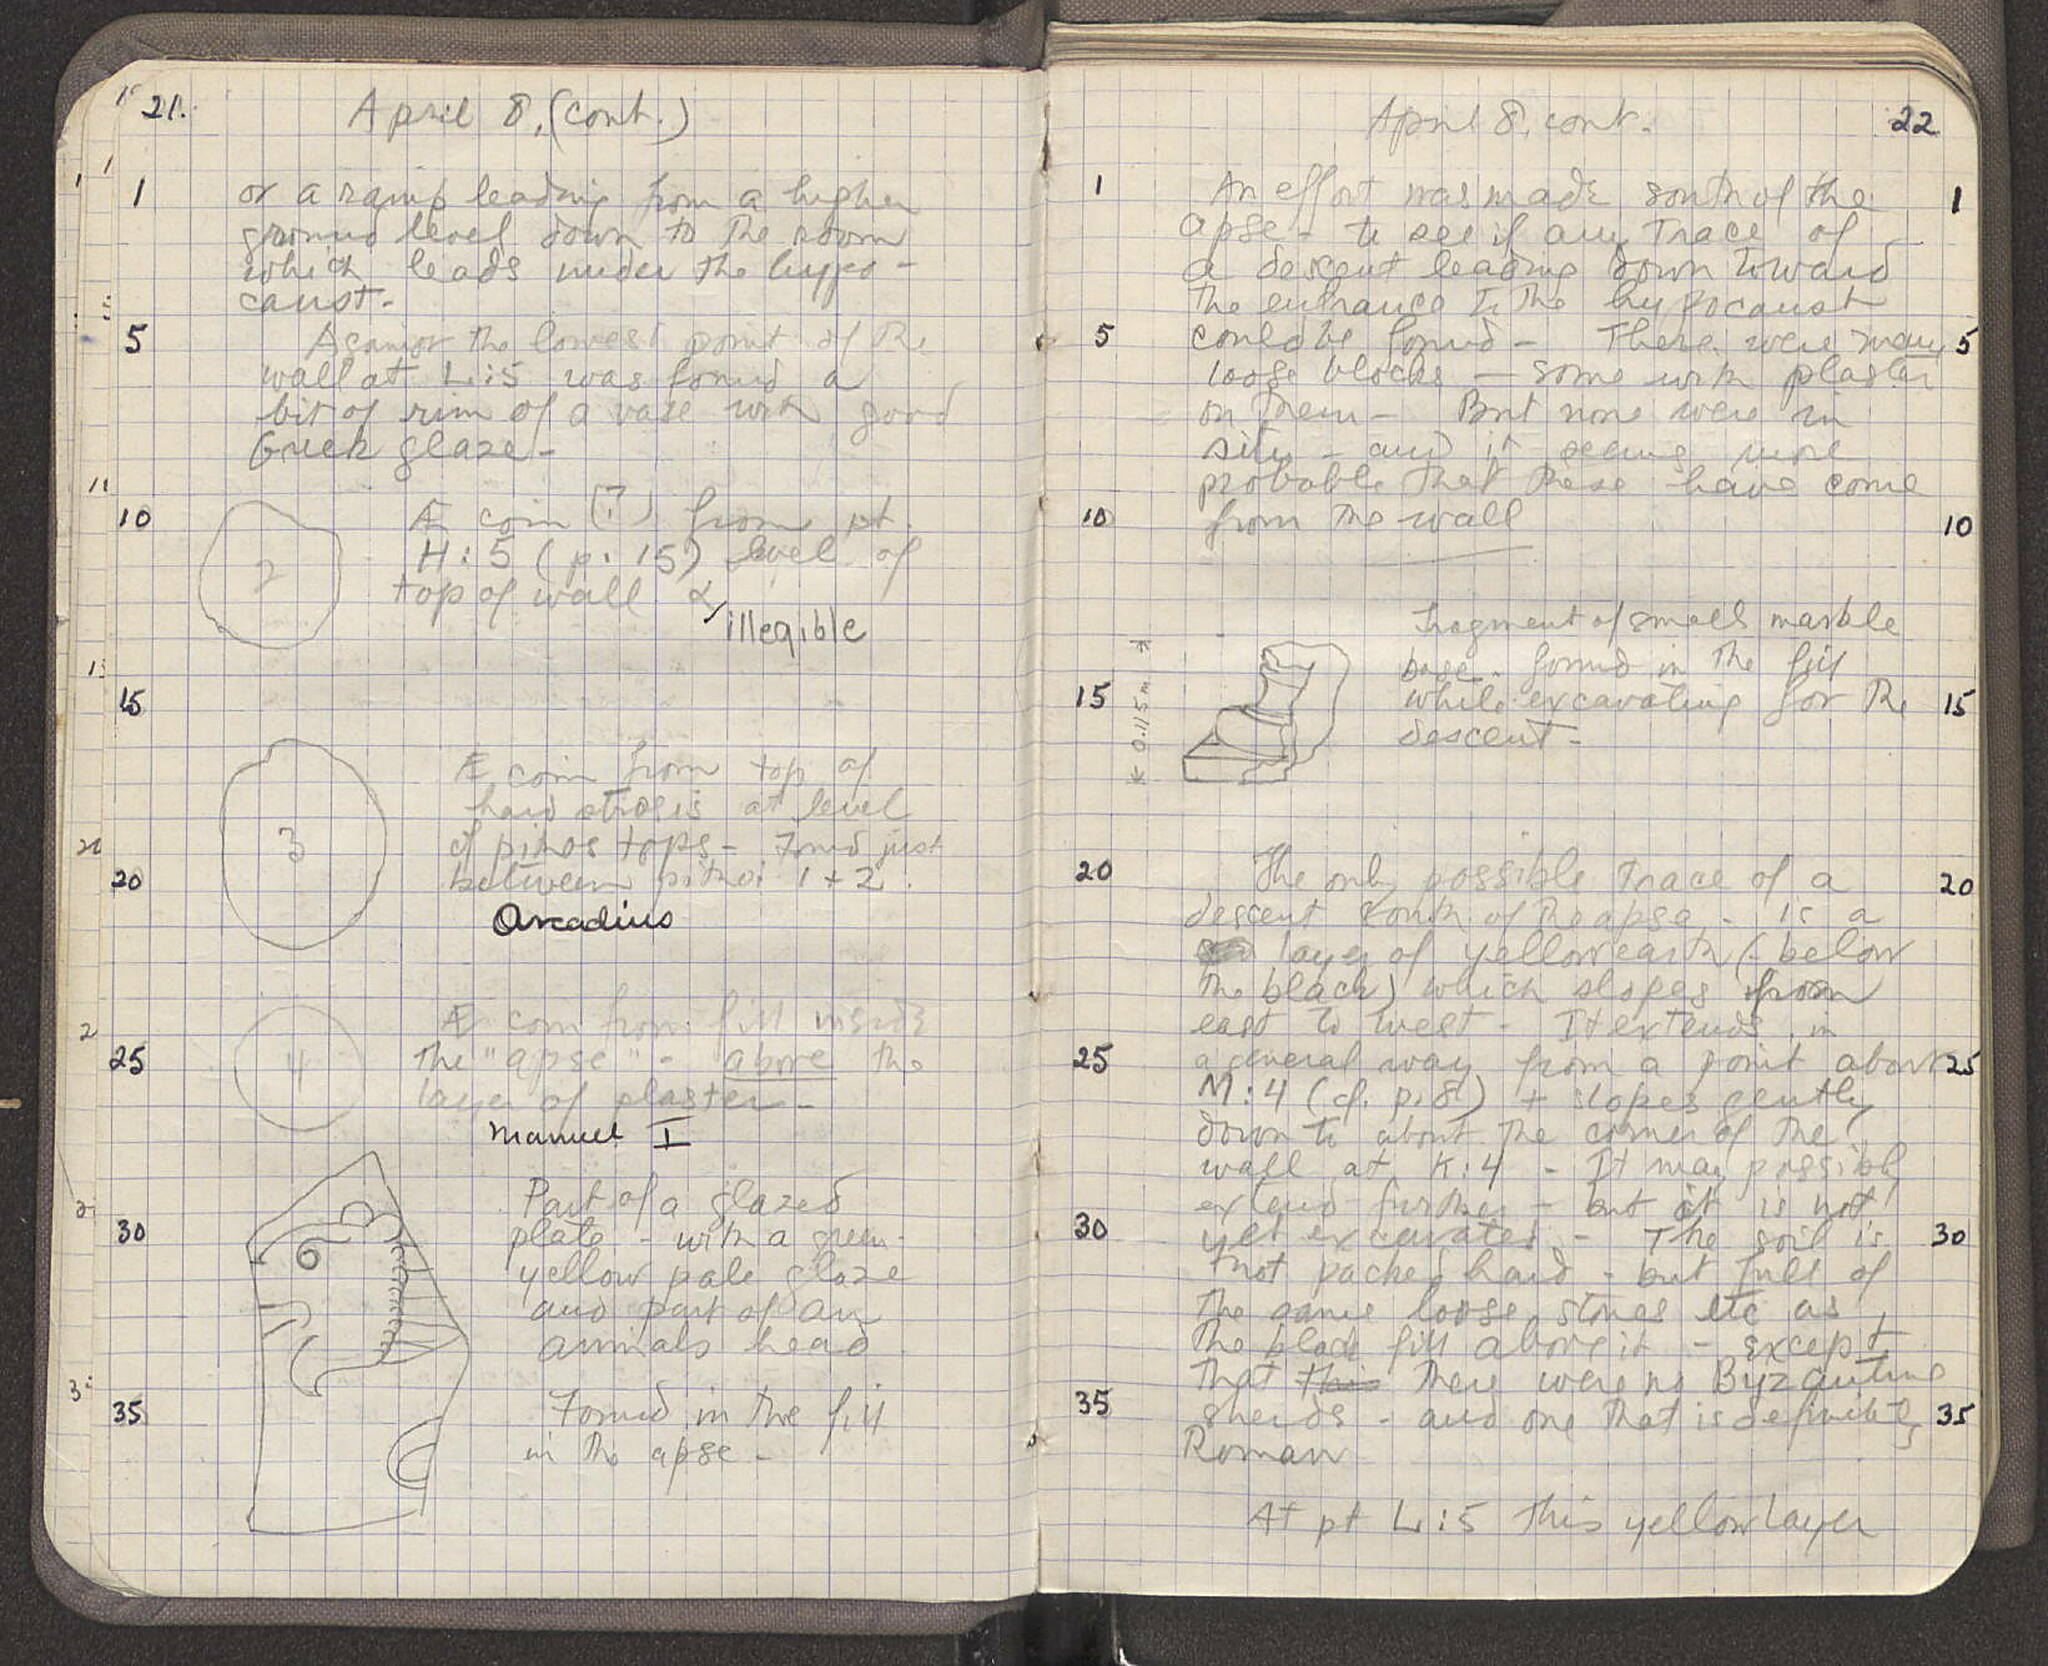 21.
April 8, (cont.)
1
or a ramp leading from a higher
ground level down to the room
which leads under the hypo-
caust-
5
Against the lowest point of the
wall at L:5 was found a
bit of rim of a vase with good
Greek glaze-
10
2
Æ coin (?) from pt.
H:5 (p. 15) level of
top of wall α
illegible
15
3
Æ coin from top of
hard strosis at level
of pithos tops- Found just
between pithoi 1+2.
20
Arcadius
4
Æ coin from fill inside
25
the "apse"- above the
layer of plaster-
Manuel I
Part of a glazed
30
plate - with a green-
yellow pale glaze
and part of an
animals head
35
Found in the fill
in the apse-
April 8, cont.
22
1
An effort was made south of the
1
apse- to see if any trace of
a descent leading down toward
the entrance to the hypocaust
5
could be found- There were many
5
loose blocks - some with plaster
on them- But none were in
situ - and it seems more
probable that these have come
10
from the wall
10
Fragment of small marble
base- found in the fill
15
while excavating for the
15
descent-
0.115 m
20
The only possible trace of a
20
descent south of the apse- is a
layer of yellow earth (- below
the black) which slopes from
east to west- It extends in
25
a general way from a point about
25
M:4 (cf. p. 8) + slopes gently
down to about the corner of the
wall at K:4 - It may possibly
extend further - but it is not
30
yet excavated - The soil is
30
not packed hard - but full of
the same loose stones etc as
the black fill above it - except
that this there were no Byzantine
35
sherds - and one that is definitely
35
Roman
At pt L:5 this yellow layer